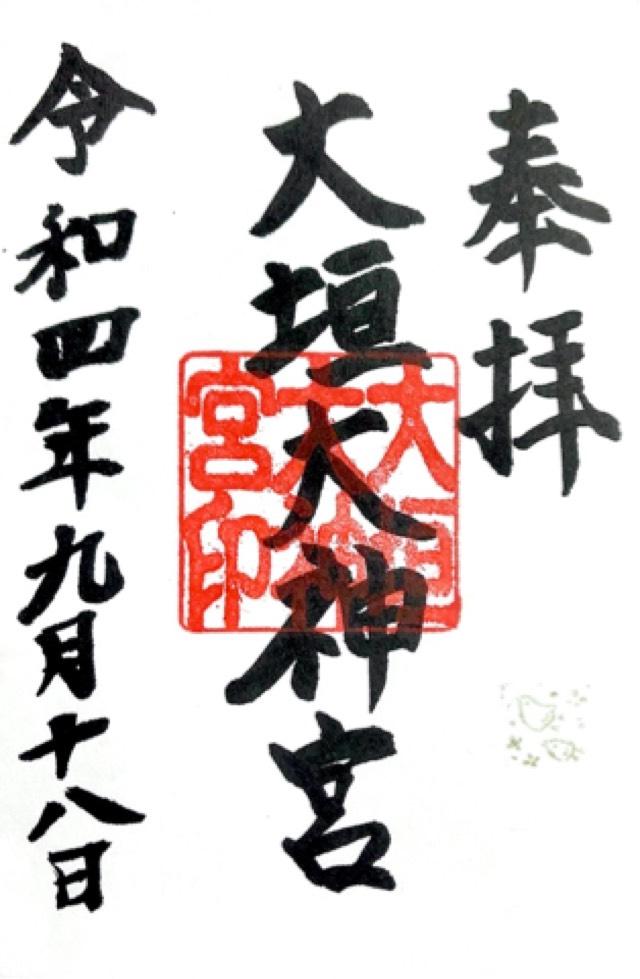 奉拝
大垣大神宮
大垣大神宮印
令和四年九月十八日